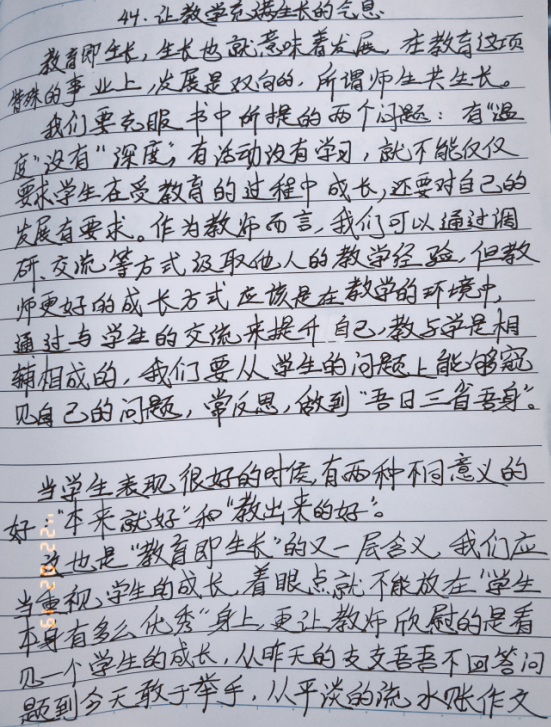 44. 让教学充满生长的气息
教育即生长，生长也就意味着发展。在教育这项
特殊的事业上，发展是双向的，所谓师生共生长。
我们要克服书中所提的两个问题：有“温
度”没有“深度”，有活动没有学习，就不能仅仅
要求学生在受教育的过程中成长，还要对自己的
发展有要求。作为教师而言，我们可以通过调
研、交流等方式汲取他人的教学经验，但教
师更好的成长方式应该是在教学的环境中，
通过与学生的交流来提升自己，教与学是相
辅相成的，我们要从学生的问题上能够窥
见自己的问题，常反思，做到“吾日三省吾身”。
当学生表现很好的时候，有两种不同意义的
好：“本来就好”和“教出来的好”。
这也是“教育即生长”的又一层含义，我们应
当重视学生的成长，着眼点就不能放在“学生
本身有多么优秀”身上，更让教师欣慰的是看
见一个学生的成长，从昨天的支支吾吾不回答问
题到今天敢于举手，从平淡的流水账作文